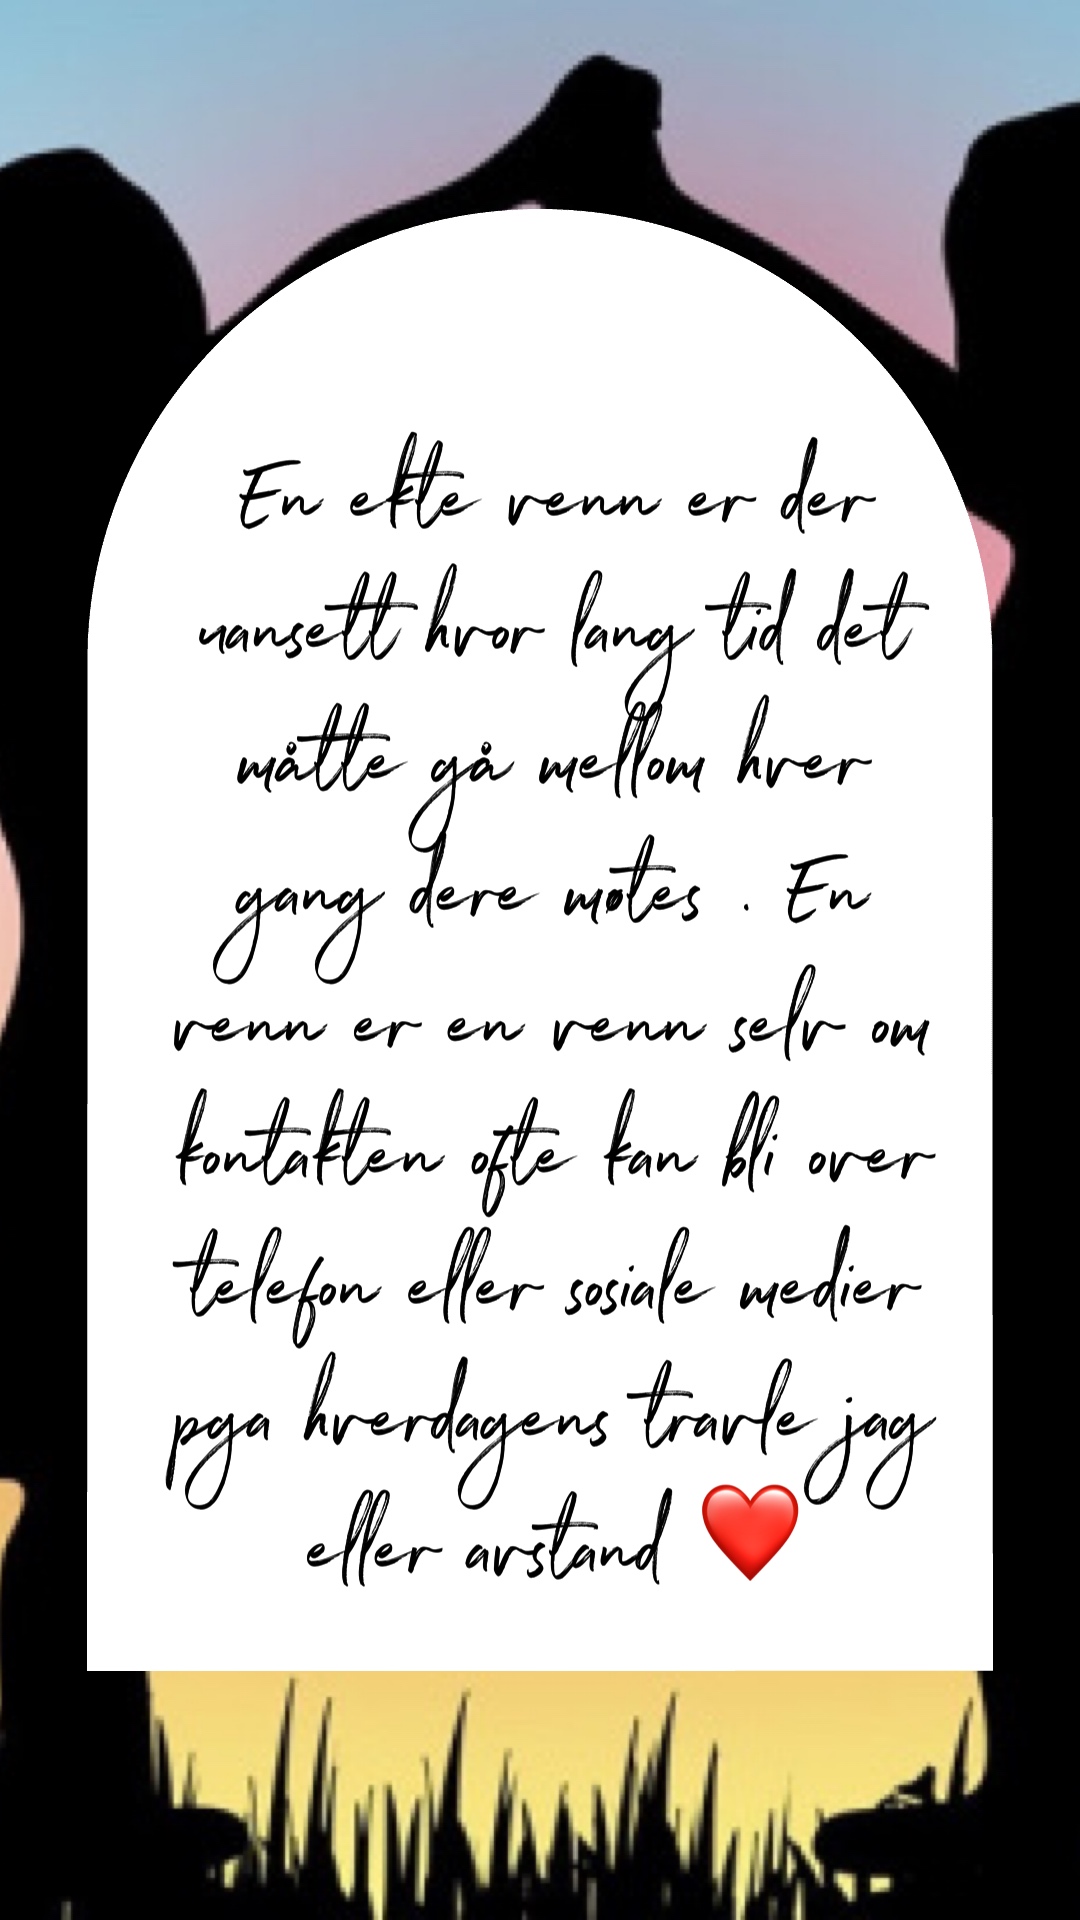 En ekte venn er der
uansett hvor lang tid det
måtte gå mellom hver
gang dere møtes . En
venn er en venn selv om
kontakten ofte kan bli over
telefon eller sosiale medier
pga hverdagens travle jag
eller avstand ❤️